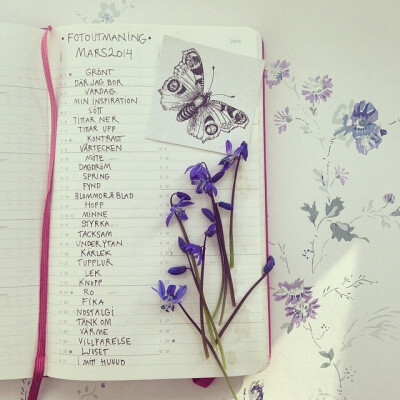 FOTOUTMANING
MARS 2014
GRÖNT
DÄR JAG BOR
VARDAG
MIN INSPIRATION
SÖTT
TITTAR NER
TITTAR UPP
KONTRAST
VÅRTECKEN
MÖTE
DAGDRÖM
SPRING
FYND
BLOMMOR & BLAD
HOPP
MINNE
STYRKA
TACKSAM
UNDER YTAN
KÄRLEK
TUPPLUR
LEK
KNOPP
RO
FIKA
NOSTALGI
TÄNK OM
VÄRME
VILLFARELSE
LJUSET
I MITT HUVUD